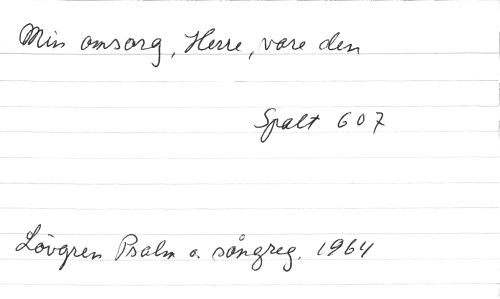 Min omsorg, Herre, vare den
Spalt 607
Lövgren Psalm o. sångreg. 1964